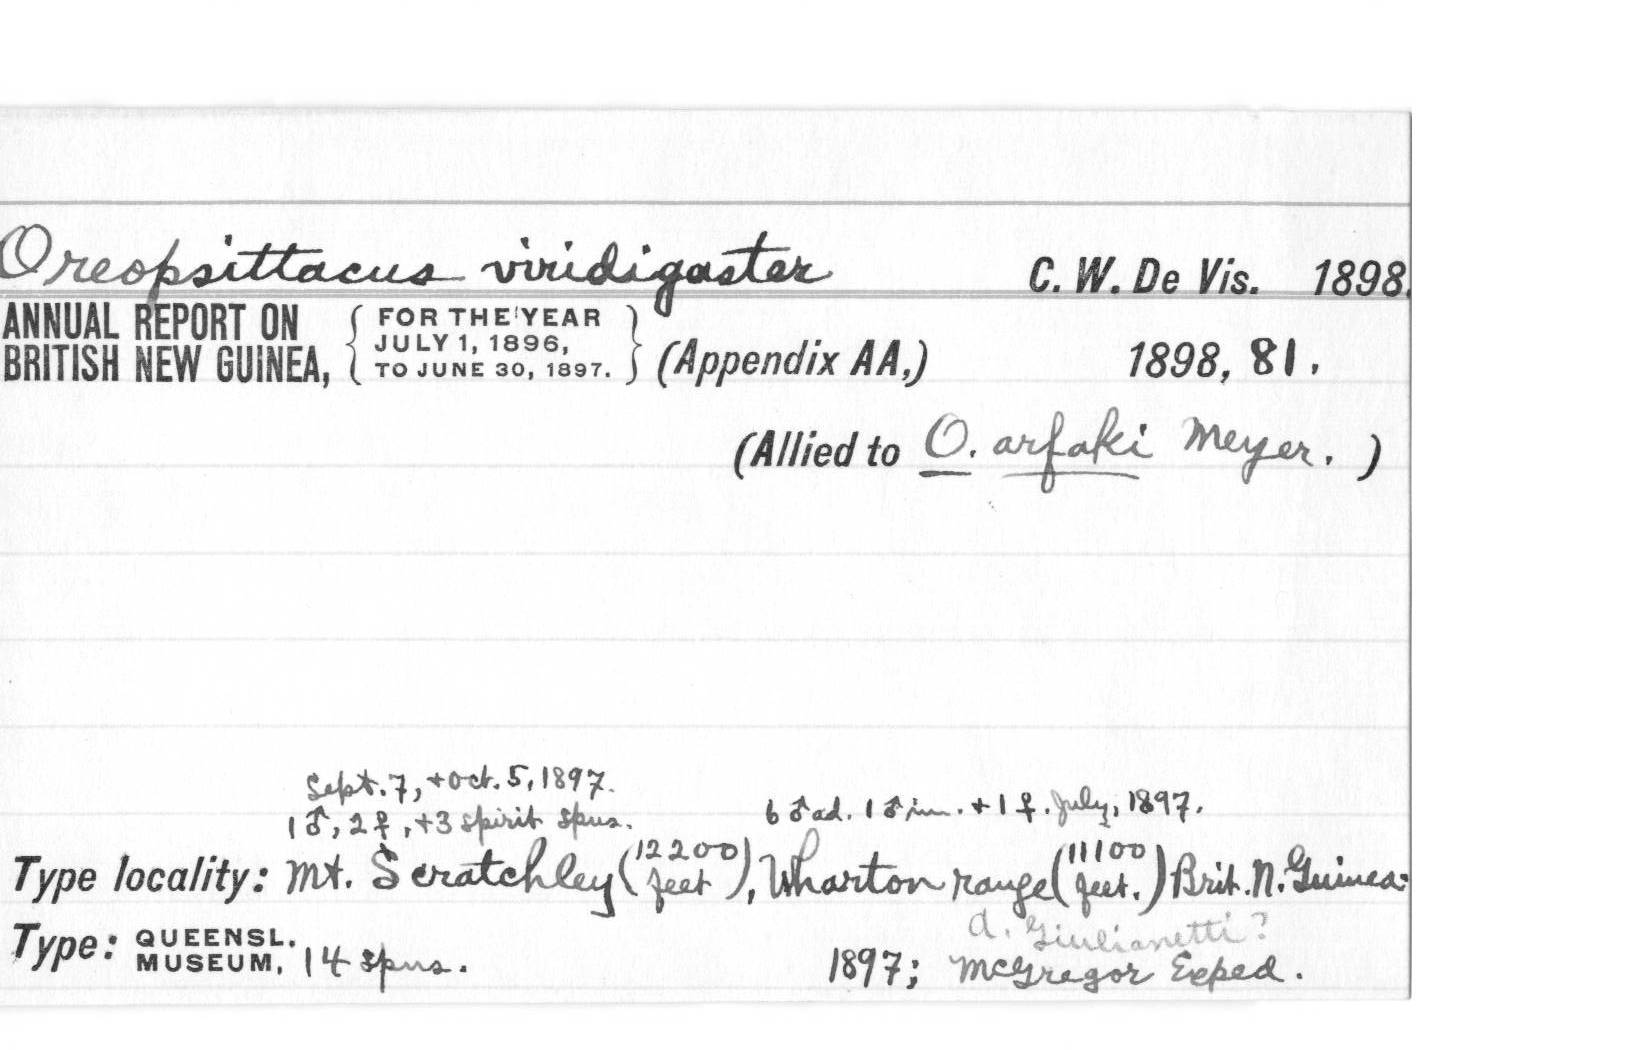 Oreopsittacus viridigaster C. W. De Vis. 1898.
ANNUAL REPORT ON BRITISH NEW GUINEA, { FOR THE YEAR JULY 1, 1896, TO JUNE 30, 1897. } (Appendix AA,) 1898, 81.
(Allied to O. arfaki Meyer. )
Sept. 7, + Oct. 5, 1897.
1 ♂, 2 ♀, + 3 spirit spns. 6 ♂ ad. 1 ♂ im. + 1 ♀. July, 1897.
Type locality: Mt. Scratchley (12200 feet), Wharton range (11100 feet.) Brit. N. Guinea.
A. Giulianetti?
Type: QUEENSL. MUSEUM, 14 spns. 1897; McGregor Exped.